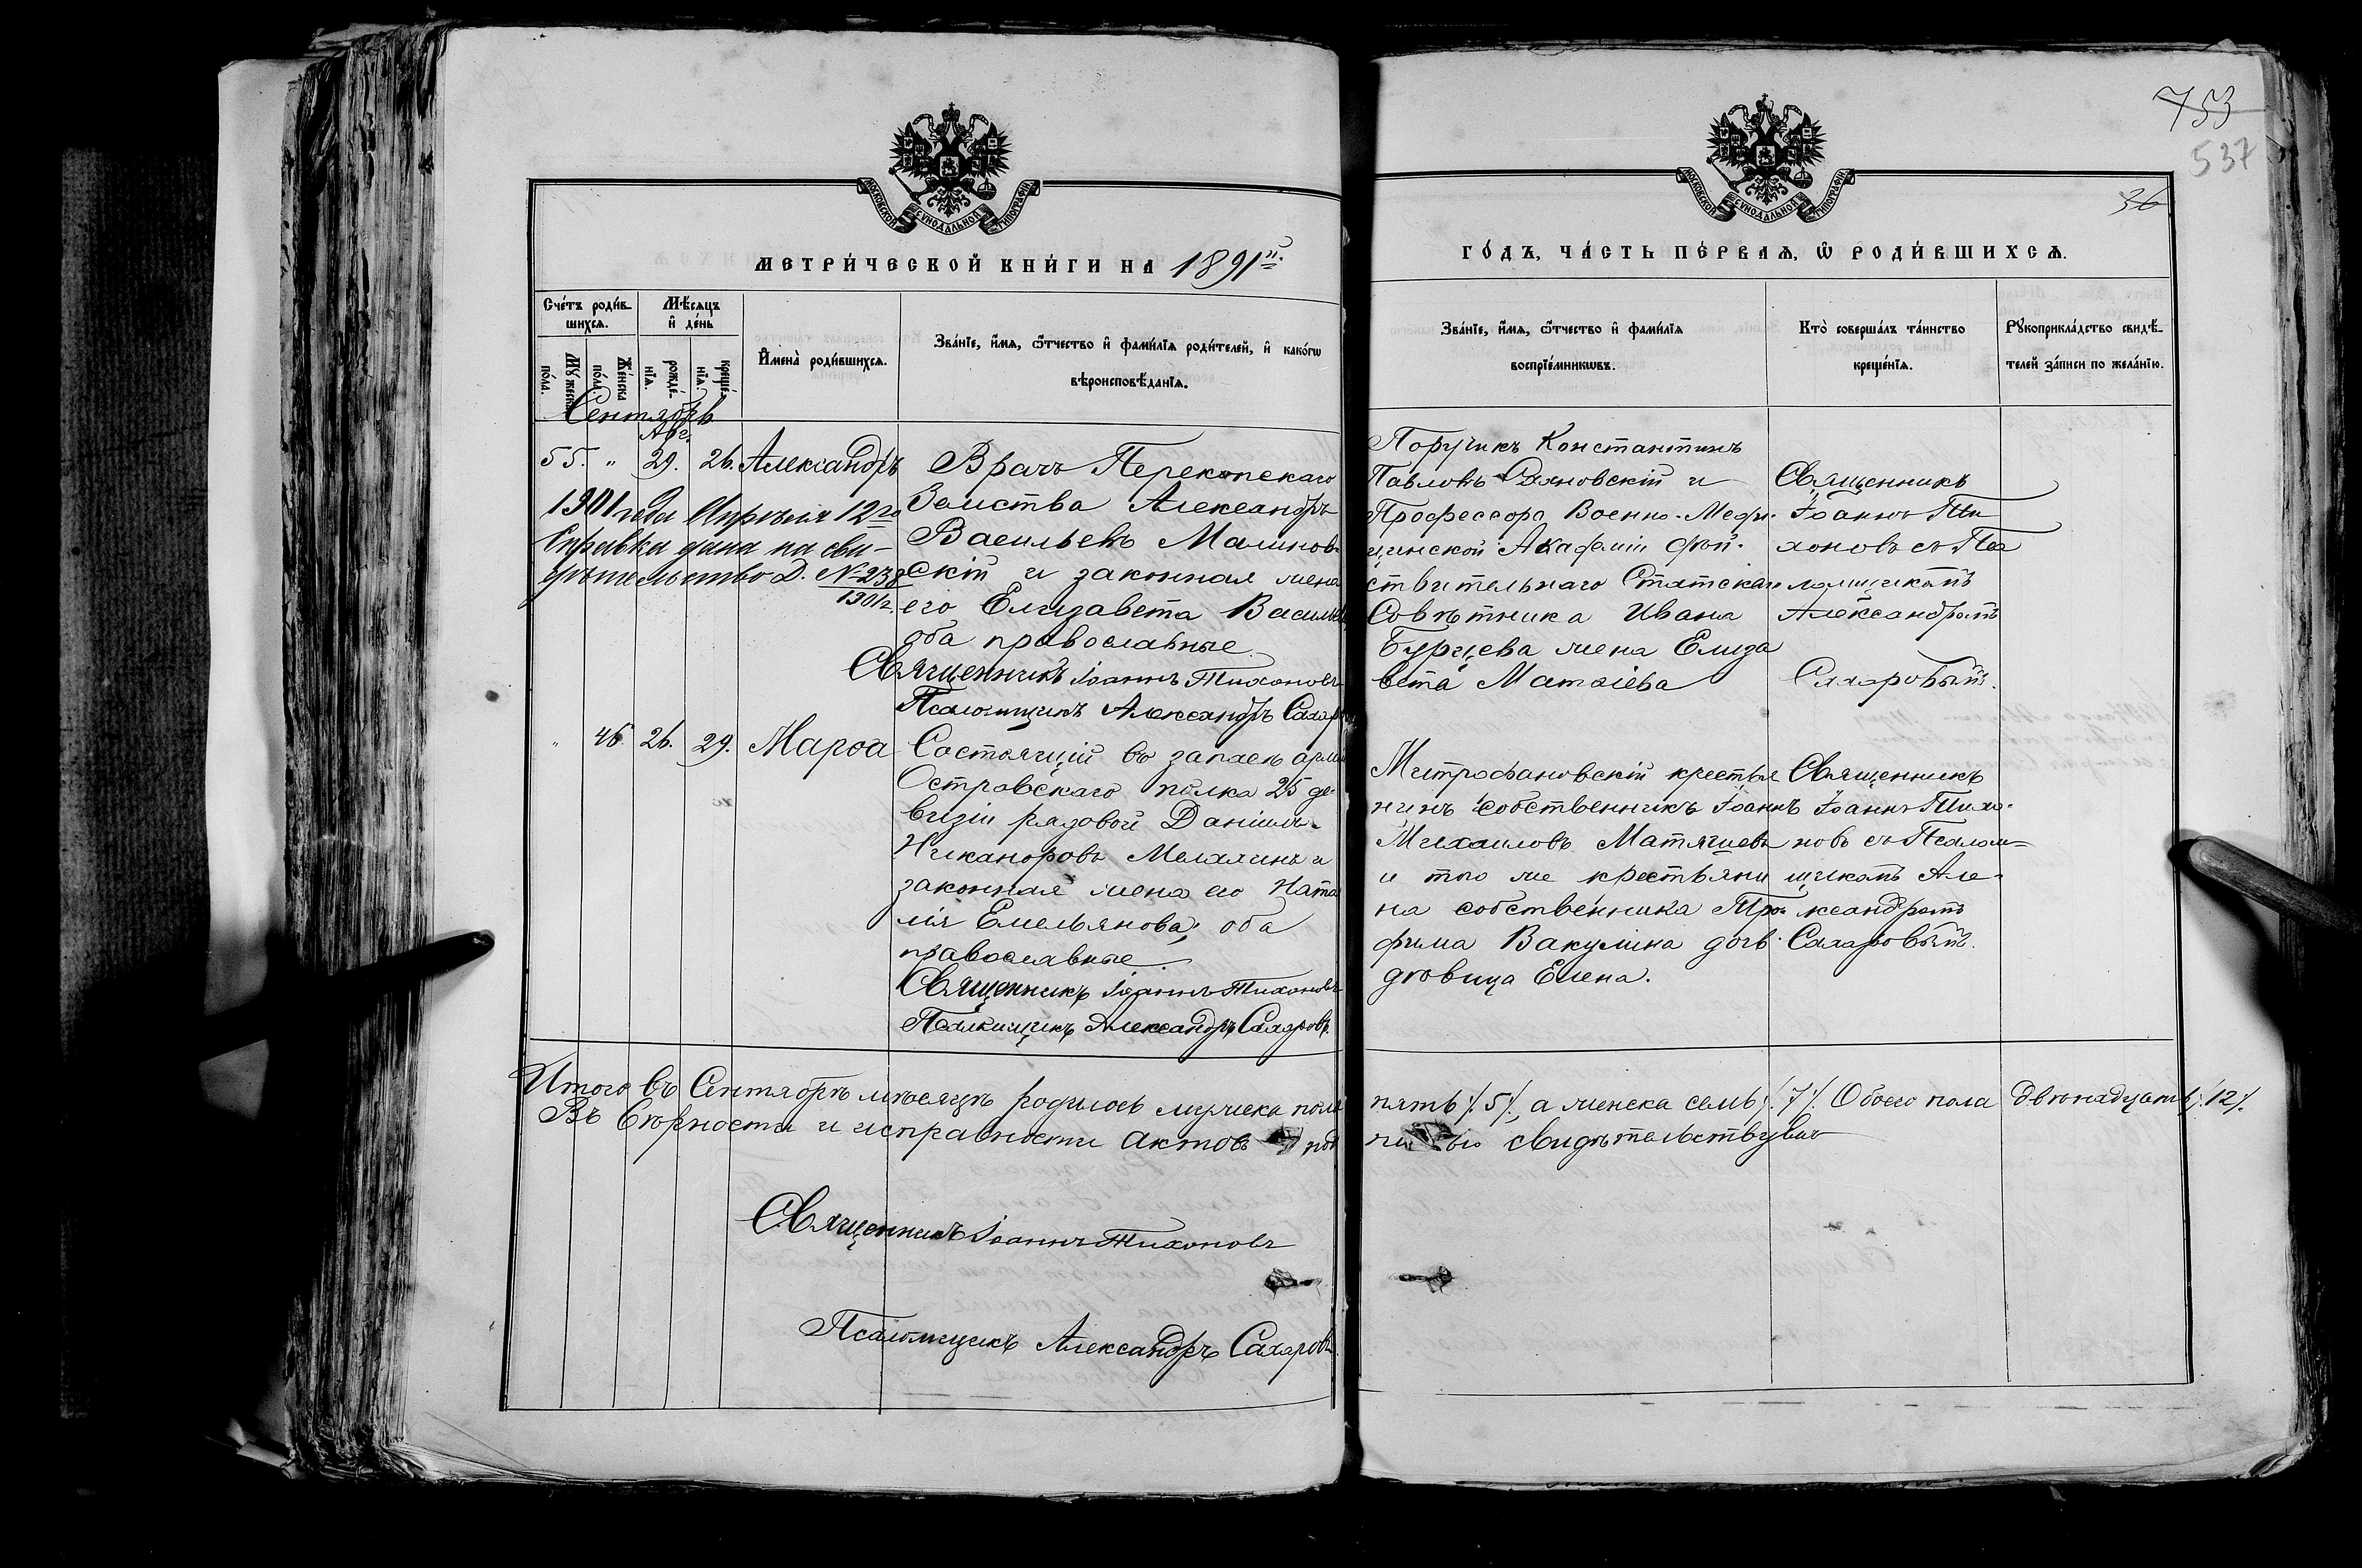 753
537
36
МОСКОВСКОЙ СУНОДАЛЬНОЙ ТИПОГРАФІИ
МОСКОВСКОЙ СУНОДАЛЬНОЙ ТИПОГРАФІИ
МЕТРИ́ЧЕСКОЙ КНИ́ГИ НА 1891й.
ГО́ДЪ, ЧА́СТЬ ПЕ́РВАѦ, Ѡ РОДИ́ВШИХСѦ.
Сче́тъ роди́вшихсѧ.
Мѣ́сѧцъ и де́нь
Имена̀ роди́вшихсѧ.
Зва́нїе, и́мѧ, ѻ҆́тчество и фами́лїѧ роди́телей, и како́гѡ вѣроисповѣ́данїѧ.
Зва́нїе, и́мѧ, ѻ҆́тчество и фами́лїѧ воспрїе́мникѡвъ.
Кто̀ соверша́лъ та́инство креще́нїѧ.
Рꙋкоприкла́дство свидѣ́телей за́писи по жела́нїю.
Мꙋ́жеска по́ла.
Же́нска по́ла.
рожде́нїѧ.
креще́нїѧ.
Сентябрь
Авг.
55. " 29. 26. Александръ
1901 года Апрѣля 12го
Справка дана на сви-
дѣтельство Д. № 238
1901 г.
Врачъ Перекопскаго
Земства Александръ
Васильевъ Малинов-
скій и законная жена
его Елизавета Василь
оба православные.
Священникъ Іоаннъ Тихоновъ
Псаломщикъ Александръ Сахаровъ
Поручикъ Константинъ
Павловъ и
Профессора Военно-Меди-
цинской Академіи Дѣй-
ствительнаго Статскаго
Совѣтника Ивана
жена Елиза
вета Матвіева
Священникъ
Іоаннъ Ти
хоновъ съ Пса
ломщикомъ
Александромъ
Сахаровымъ.
" 46. 26. 29. Марѳа
Состоящій въ запасѣ арміи
Островскаго полка 25 ди-
визіи рядовой Даніилъ
Никаноровъ и
законная жена его Ната
лія Емельянова; оба
православные.
Священникъ Іоаннъ Тихоновъ
Псаломщикъ Александръ Сахаровъ.
Митрофановскій крестья
нинъ собственникъ Іоаннъ
Михаиловъ и
того же крестьяни
на собственника Тро-
фима Вакулина дочь
дѣвица Елена.
Священникъ
Іоаннъ Тихо-
новъ съ Псалом-
щикомъ Але-
ксандромъ
Сахаровымъ.
Итого въ Сентябрѣ мѣсяцѣ родилось мужеска пола пять /.5/., а женска семь /.7/. Обоего пола двѣнадцать /.12/.
Въ вѣрности и исправности актовъ свидѣтельствуемъ
Священникъ Іоаннъ Тихоновъ
Псаломщикъ Александръ Сахаровъ.